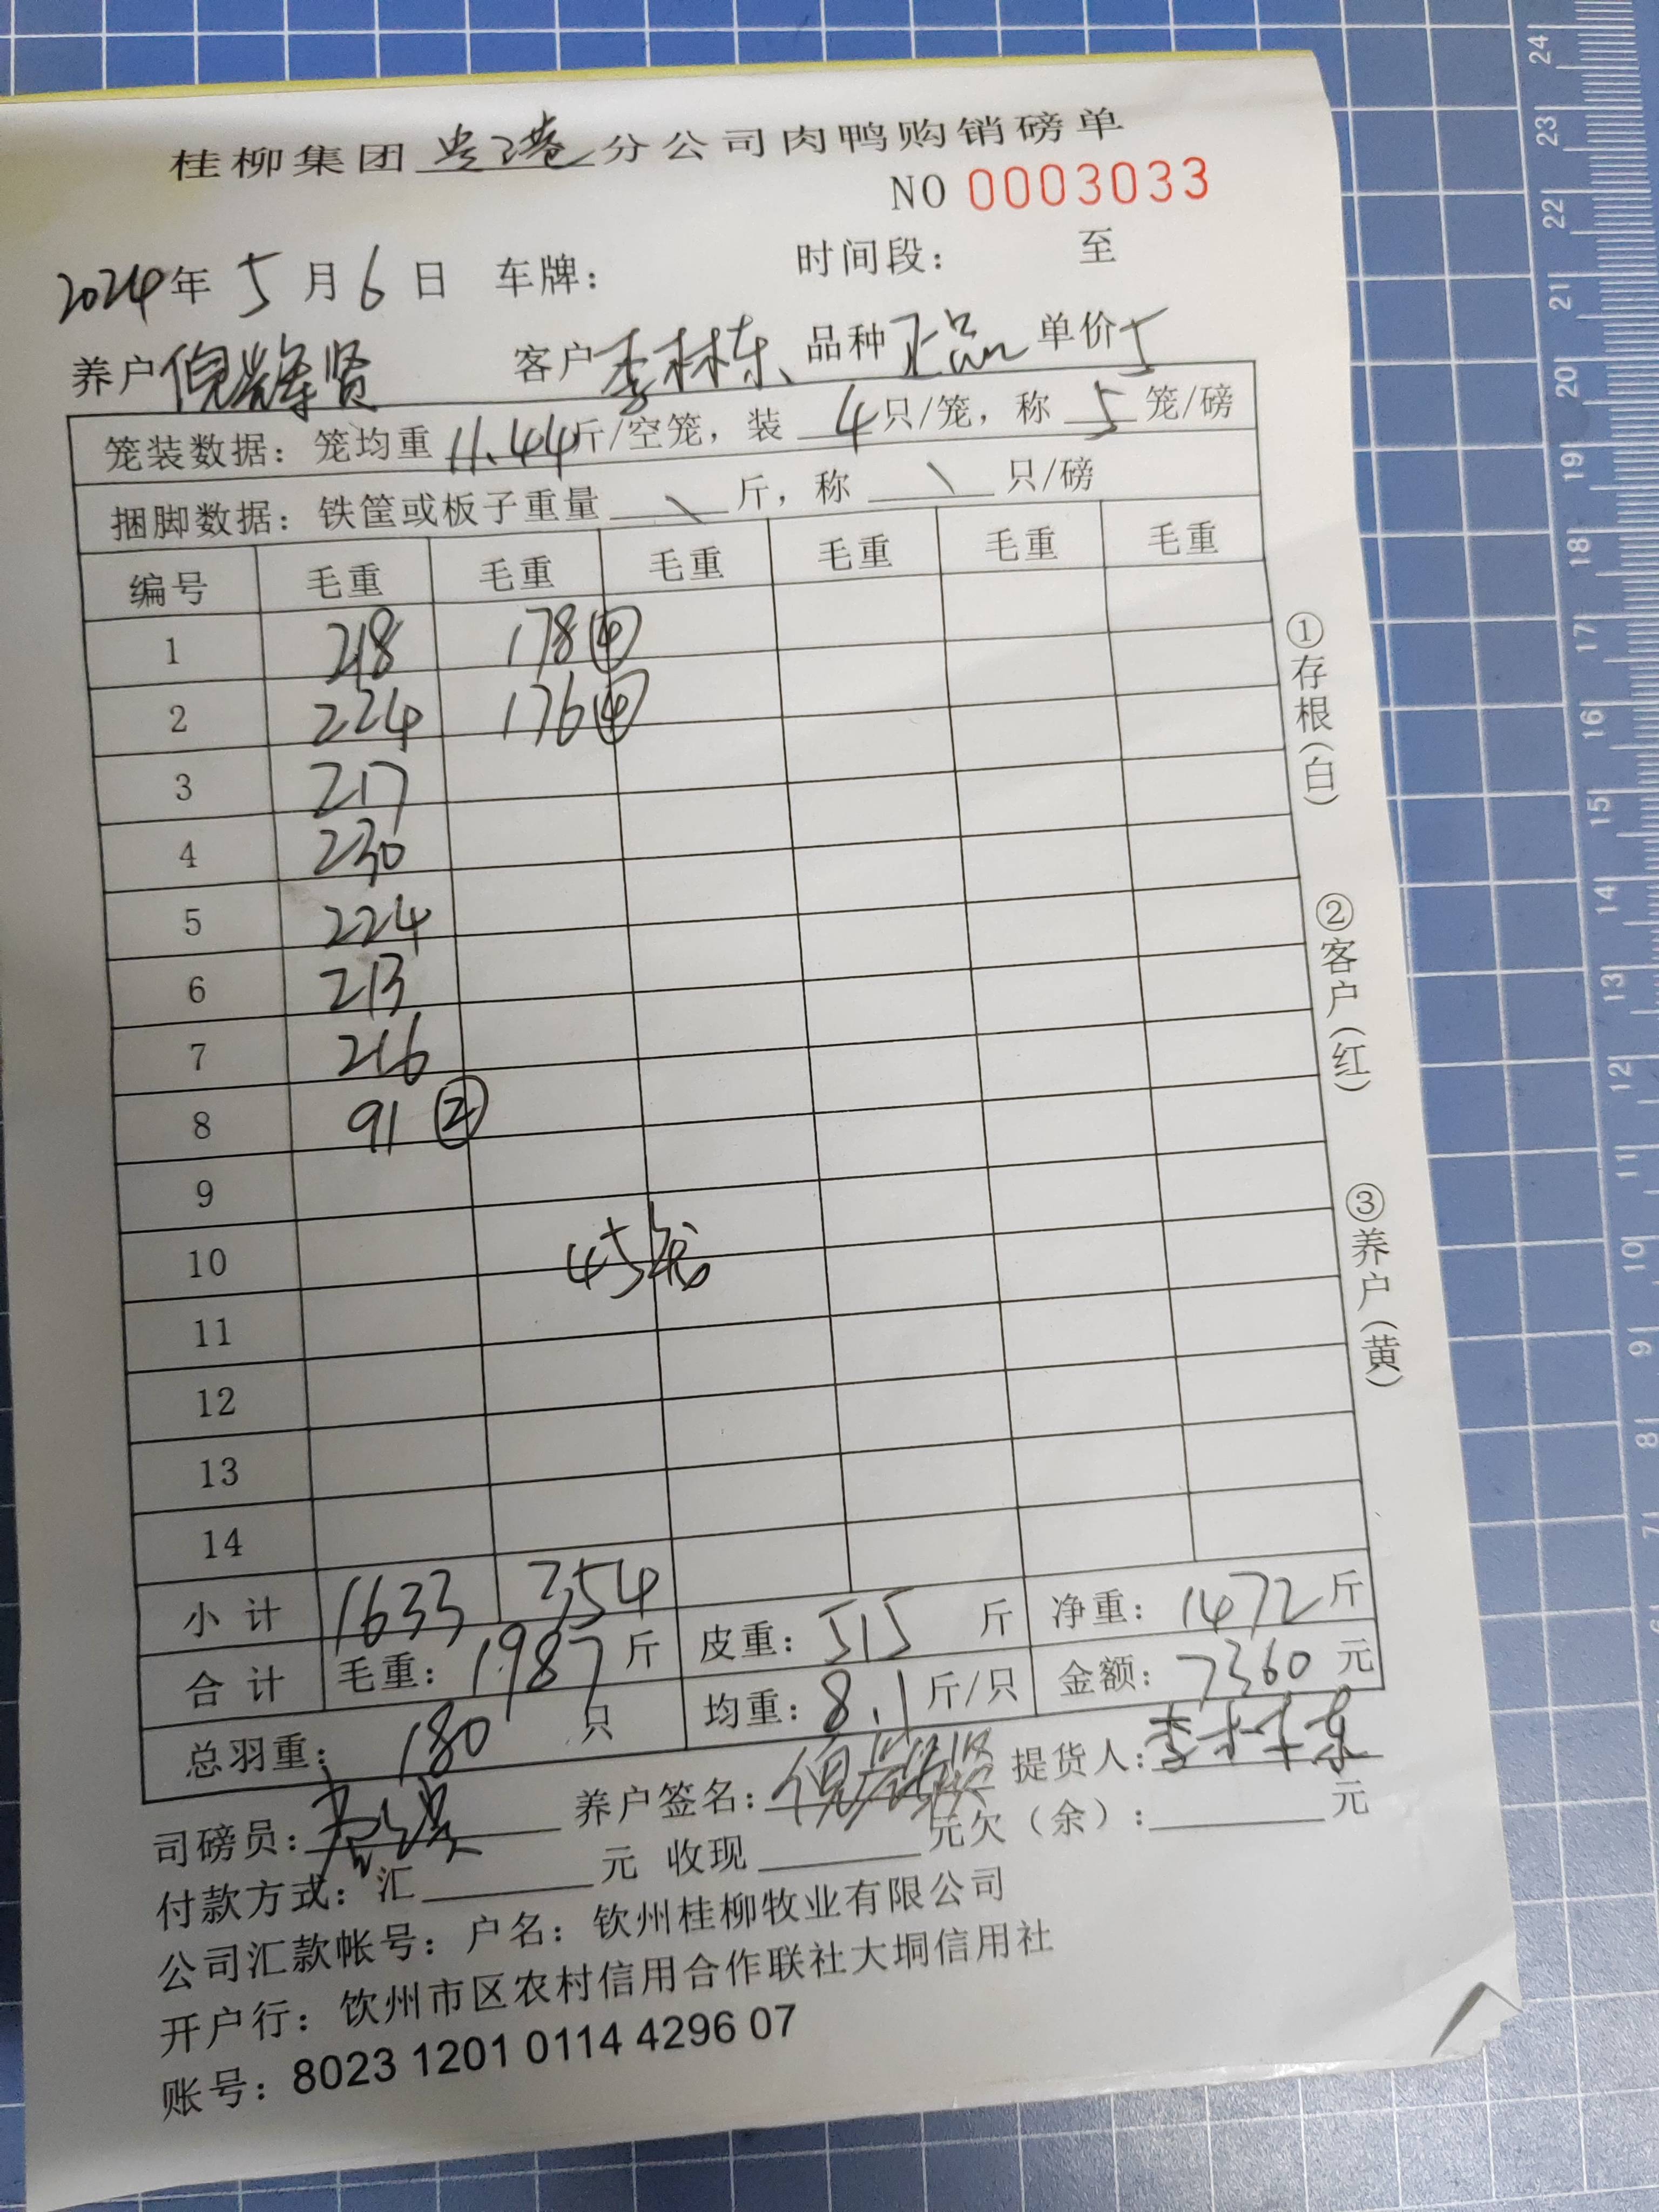 桂柳集团贵港分公司肉鸭购销磅单
NO 0003033
2024年 5 月 6 日 车牌： 时间段： 至
养户 倪辉贤 客户 李林东 品种 正品 单价 5
笼装数据：笼均重 11.44 斤/空笼，装 4 只/笼，称 5 笼/磅
捆脚数据：铁筐或板子重量 \ 斤，称 \ 只/磅
编号 毛重 毛重 毛重 毛重 毛重 毛重
1 218 178④
2 224 176④
3 217
4 230
5 224
6 213
7 216
8 91②
9
10 45笼
11
12
13
14
小计 1633 354 皮重：515 斤 净重：1472 斤
合计 毛重：1987 斤 均重：8.1 斤/只 金额：7360 元
总羽重：180 只
司磅员： 养户签名：倪辉贤 提货人：李林东
付款方式：汇 元 收现 元欠（余）： 元
公司汇款帐号：户名：钦州桂柳牧业有限公司
开户行：钦州市区农村信用合作联社大垌信用社
账号：8023 1201 0114 4296 07
①存根（白）
②客户（红）
③养户（黄）
24
23
22
21
20
19
18
17
16
15
14
13
12
11
10
9
8
7